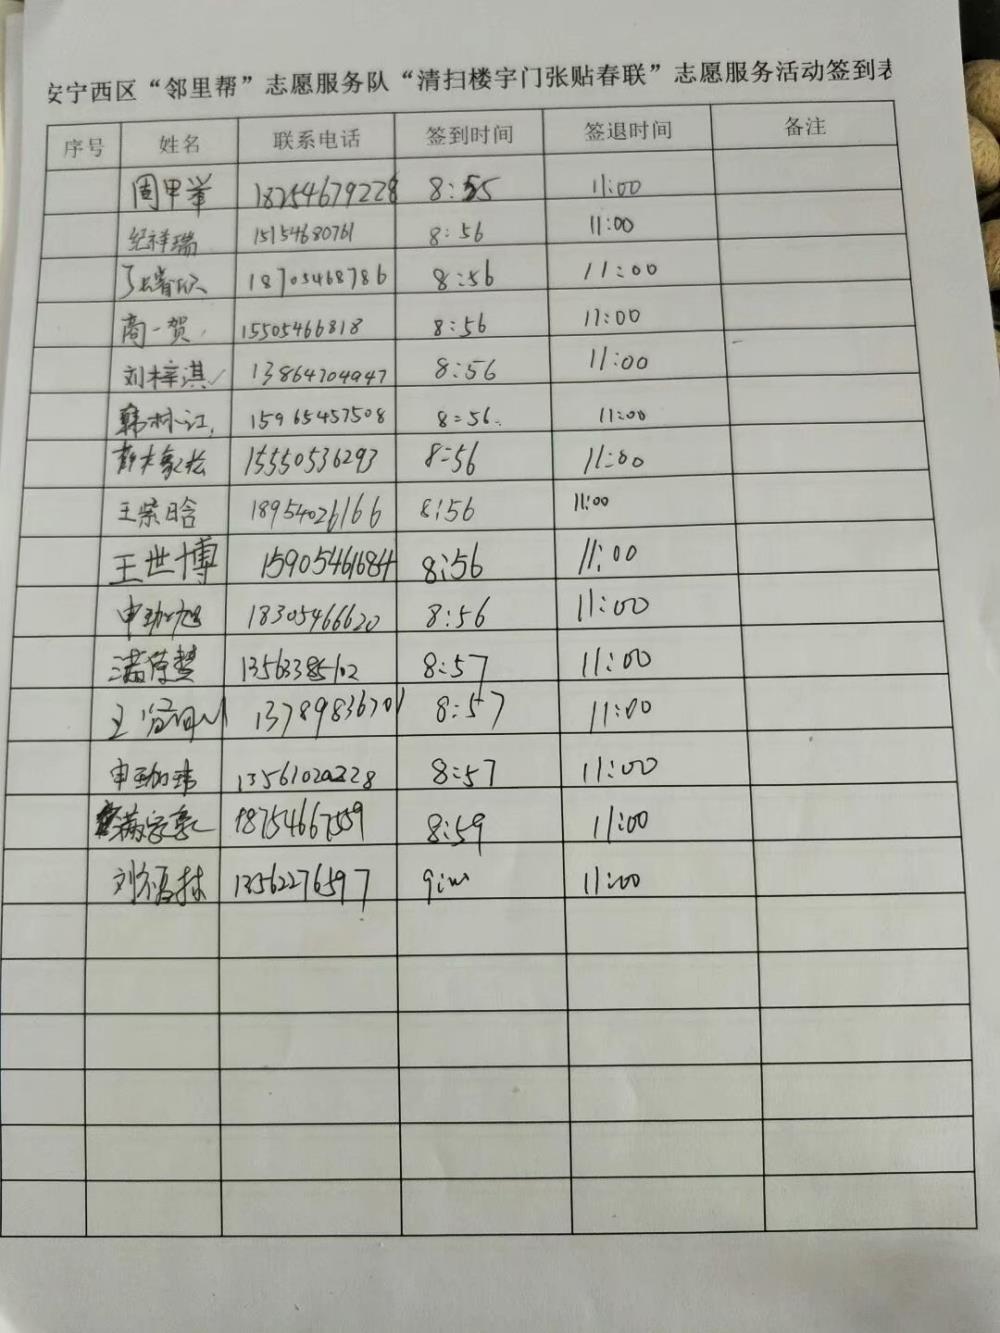 安宁西区“邻里帮”志愿服务队“清扫楼宇门张贴春联”志愿服务活动签到表
序号 姓名 联系电话 签到时间 签退时间 备注
周甲举 18254679228 8:55 11:00
纪祥瑞 15154680761 8:56 11:00
18705468786 8:56 11:00
商一贺 15505466818 8:56 11:00
刘梓淇 13864704947 8:56 11:00
韩林江 15965457508 8:56 11:00
15550536293 8:56 11:00
王紫晗 18954026166 8:56 11:00
王世博 15905461684 8:56 11:00
申珈旭 18305466620 8:56 11:00
13563385102 8:57 11:00
王 13789836701 8:57 11:00
申珈玮 13561020228 8:57 11:00
18754667559 8:59 11:00
刘 13562276597 11:00